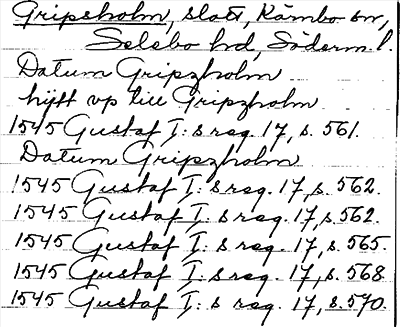 Gripsholm, slott, Kärnbo sn,
Selebo hd, Söderm. l.
Datum Gripzholm
hijtt vp till Gripzholm
1545 Gustaf I:s reg. 17, s. 561.
Datum Gripzholm
1545 Gustaf I:s reg. 17, s. 562.
1545 Gustaf I:s reg. 17, s. 562.
1545 Gustaf I:s reg. 17, s. 565.
1545 Gustaf I:s reg. 17, s. 568
1545 Gustaf I:s reg. 17, s. 570.